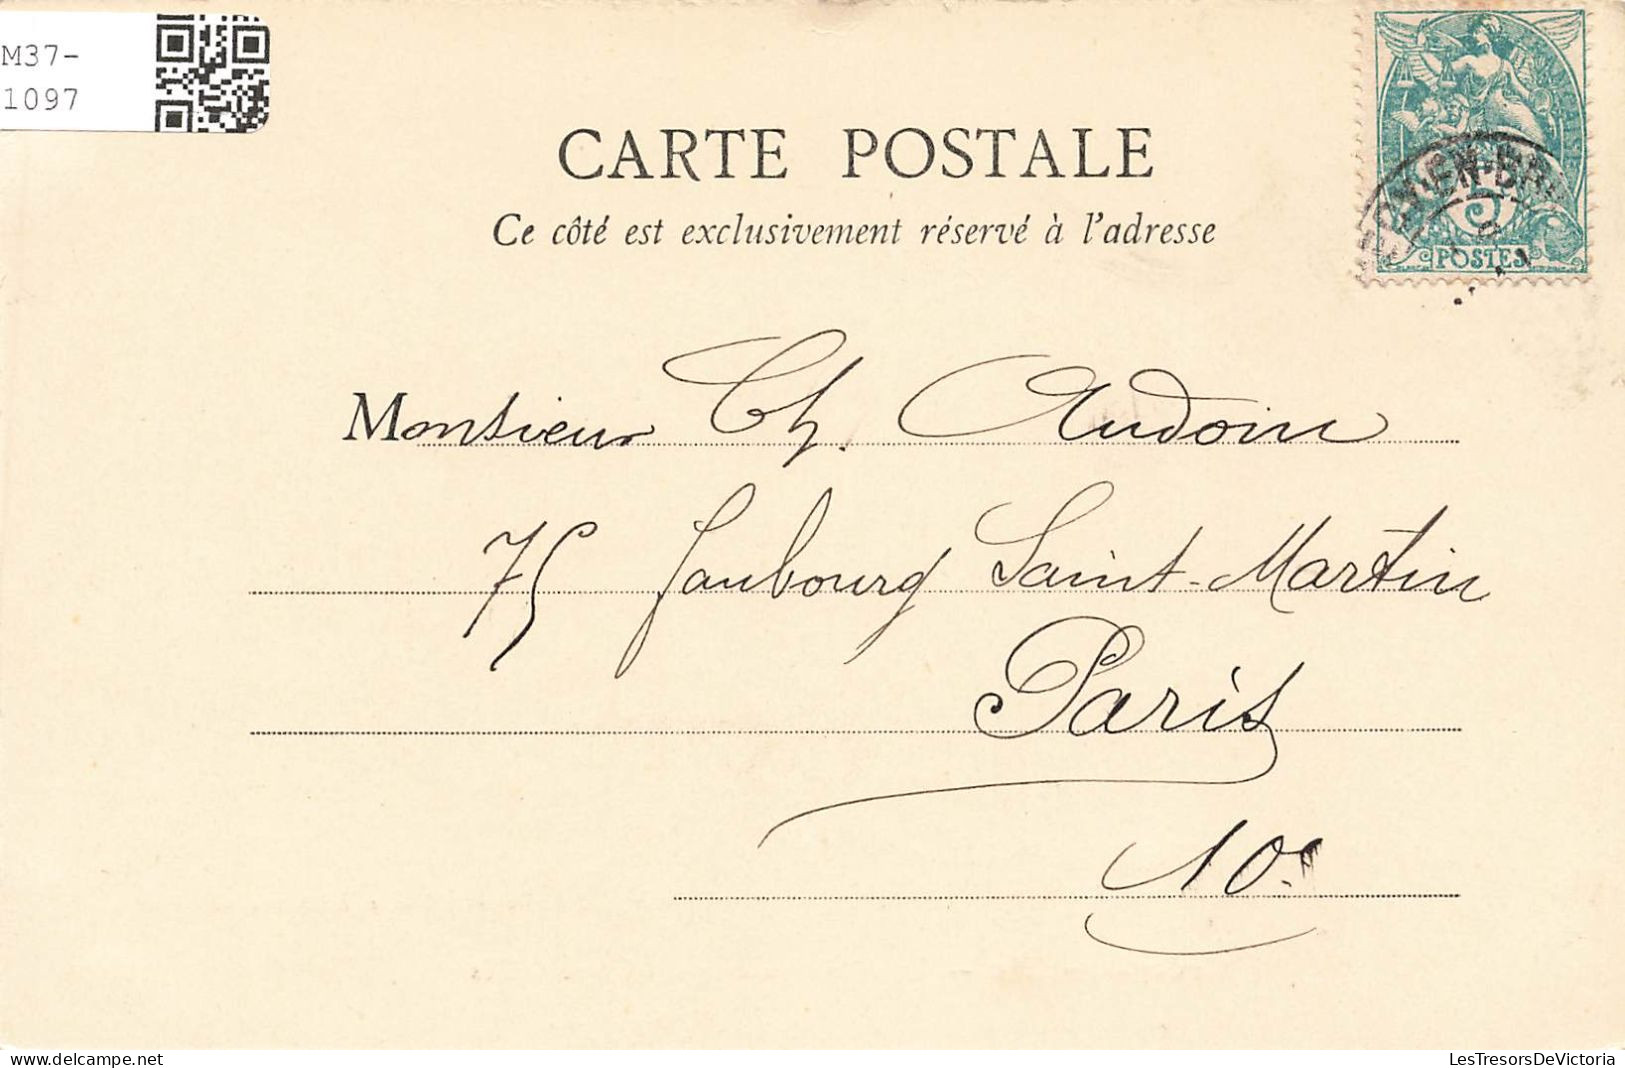 M37-
1097
CARTE POSTALE
Ce côté est exclusivement réservé à l'adresse
5
POSTES
Monsieur Ch. Audoin
75 faubourg Saint-Martin
Paris
10e
LesTresorsDeVictoria